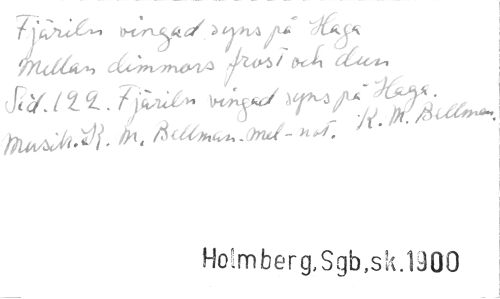 Fjäriln vingad syns på Haga
mellan dimmors frost och dun
Sid. 122. Fjäriln vingad syns på Haga.
Musik. K. M. Bellman. mel-not. K. M. Bellman.
Holmberg, Sgb, sk. 1900